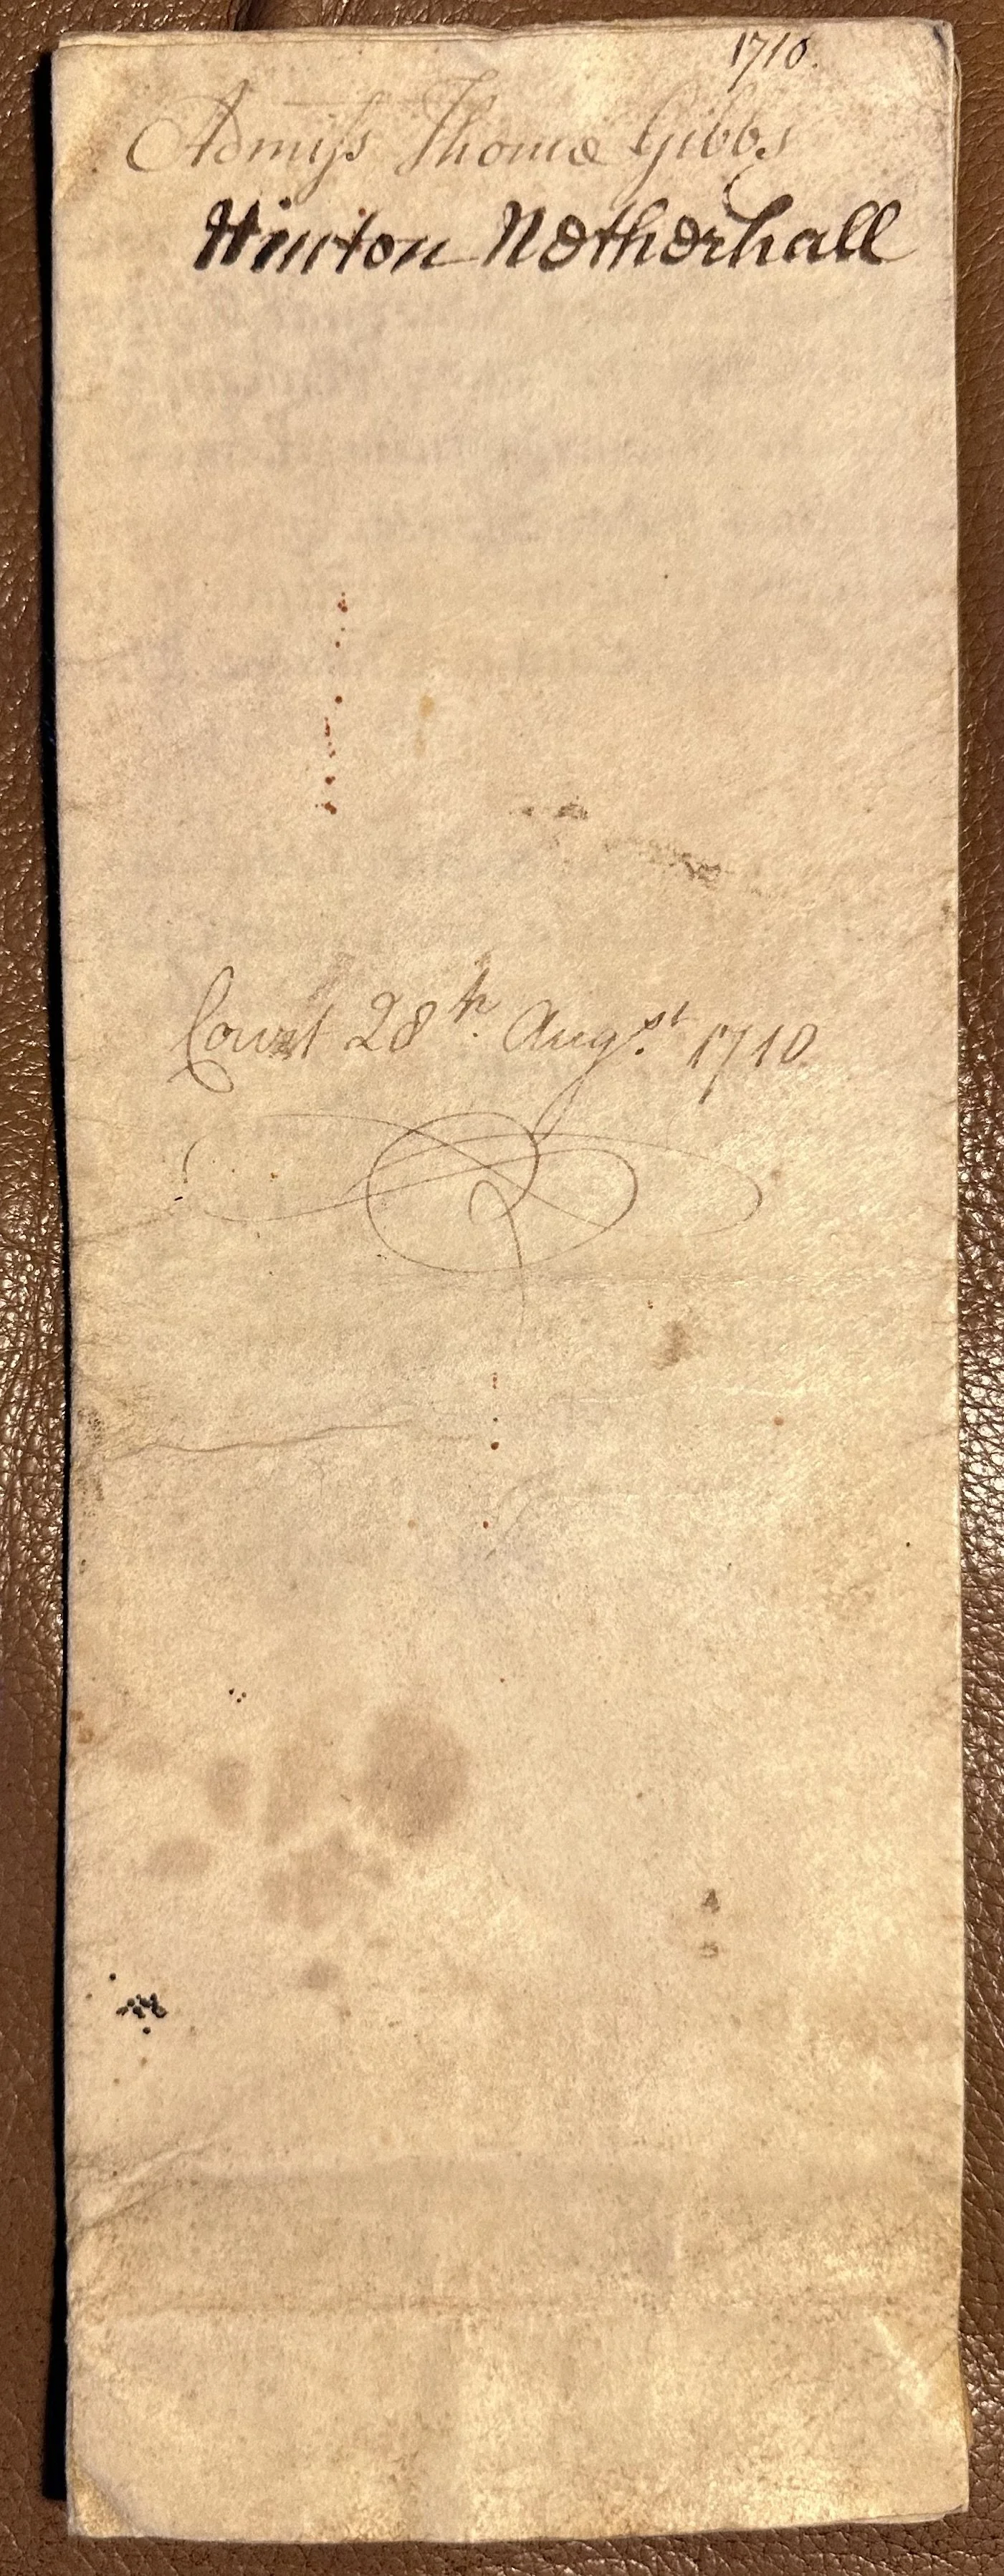 1710.
Admiss Thomæ Gibbs
Winton Netherhall
Court 28th. Augst. 1710